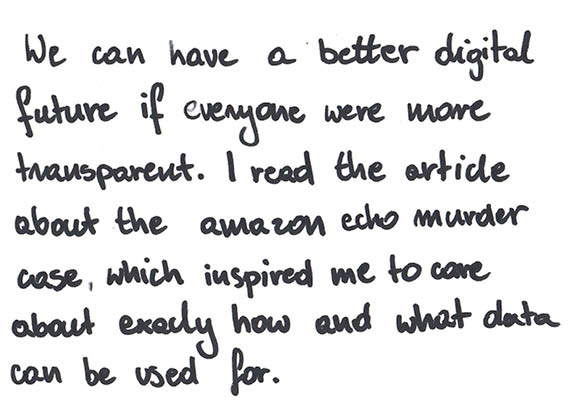 We can have a better digital
future if everyone were more
transparent. I read the article
about the amazon echo murder
case, which inspired me to care
about exacly how and what data
can be used for.